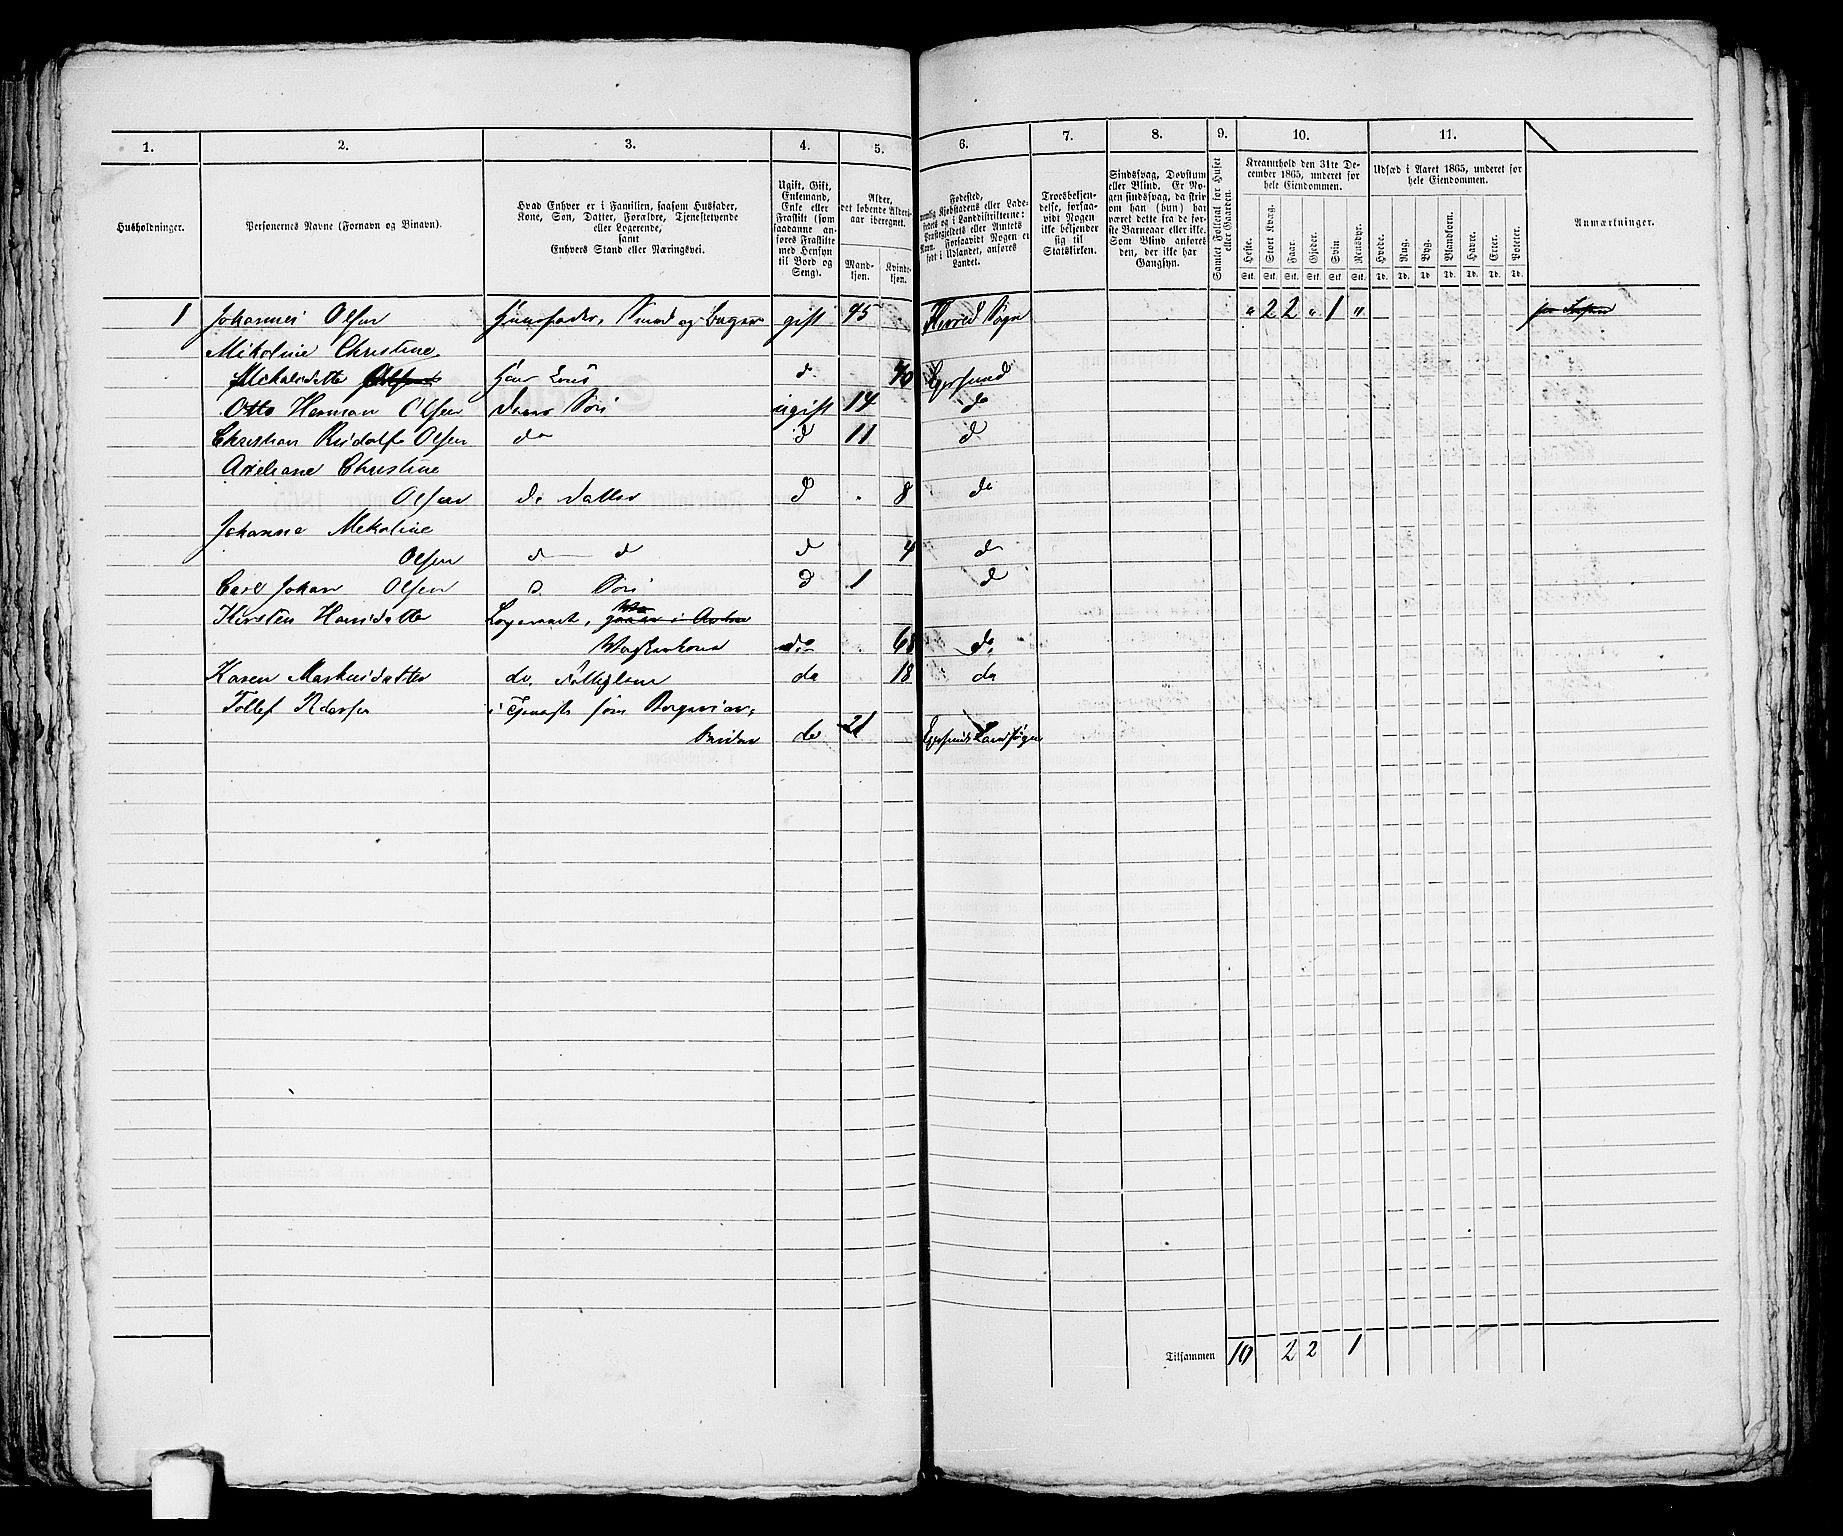 1. 2. 3. 4. 5. 6. 7. 8. 9. 10. 11.
Husholdninger.
Personernes Navne (Fornavn og Binavn).
Hvad Enhver er i Familien, saasom Husfader,
Kone, Søn, Datter, Forældre, Tjenestetyende
eller Logerende,
samt
Enhvers Stand eller Næringsvei.
Ugift, Gift,
Enkemand,
Enke eller
Fraskilt (som
saadanne an-
føres Fraskilte
med Hensyn
til Bord og
Seng).
Alder,
det løbende Alders-
aar iberegnet.
Mand-
kjøn.
Kvinde-
kjøn.
Fødested,
nemlig Kjøbstadens eller Lade-
stedets og i Landdistrikterne:
Præstegjeldets eller Amtets
Navn. Forsaavidt Nogen er
født i Udlandet, anføres
Landet.
Troesbekjen-
delse, forsaa-
vidt Nogen
ikke bekjender
sig til
Statskirken.
Sindssvag, Døvstum
eller Blind. Er No-
gen sindssvag, da skriv
om han (hun) har
været dette fra de før-
ste Barneaar eller ikke.
Som Blind anføres
den, der ikke har
Gangsyn.
Samlet Folketal for Huset
eller Gaarden.
Kreaturhold den 31te De-
cember 1865, underet for
hele Eiendommen.
Heste. Stort Kvæg. Faar. Gjeder. Svin Rensdyr.
Stk. Stk. Stk. Stk. Stk. Stk.
Udsæd i Aaret 1865, underet for
hele Eiendommen.
Hvede. Rug. Byg. Blandkorn. Havre. Erter. Poteter.
Td. Td. Td. Td. Td. Td. Td.
Anmærkninger.
1 Johannes Olsen Huusfader, Smed og Borger gift 45 Herred Sogn " 2 2 " 1 "
Mikoline Christine
Mekalsdatter hans Kone d 40 Egersund
Otto Herman Olsen deres Søn ugift 14 do
Christian Rudolf Olsen do d 11 d
Axeliane Christine
Olsen do Datter d 8 do
Johanne Mekoline
Olsen d d d 4 d
Carl Johan Olsen d. Søn d 1 d
Kirsten Hansdatter Logerende,
do 68 do
Karen Markusdatter do. do 18 do
Tollef i Tjeneste som
do 21 Egersunds Landsogn
Tilsammen 10 2 2 1